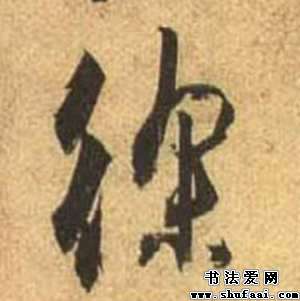 徐
书法爱网
www.shufaai.com